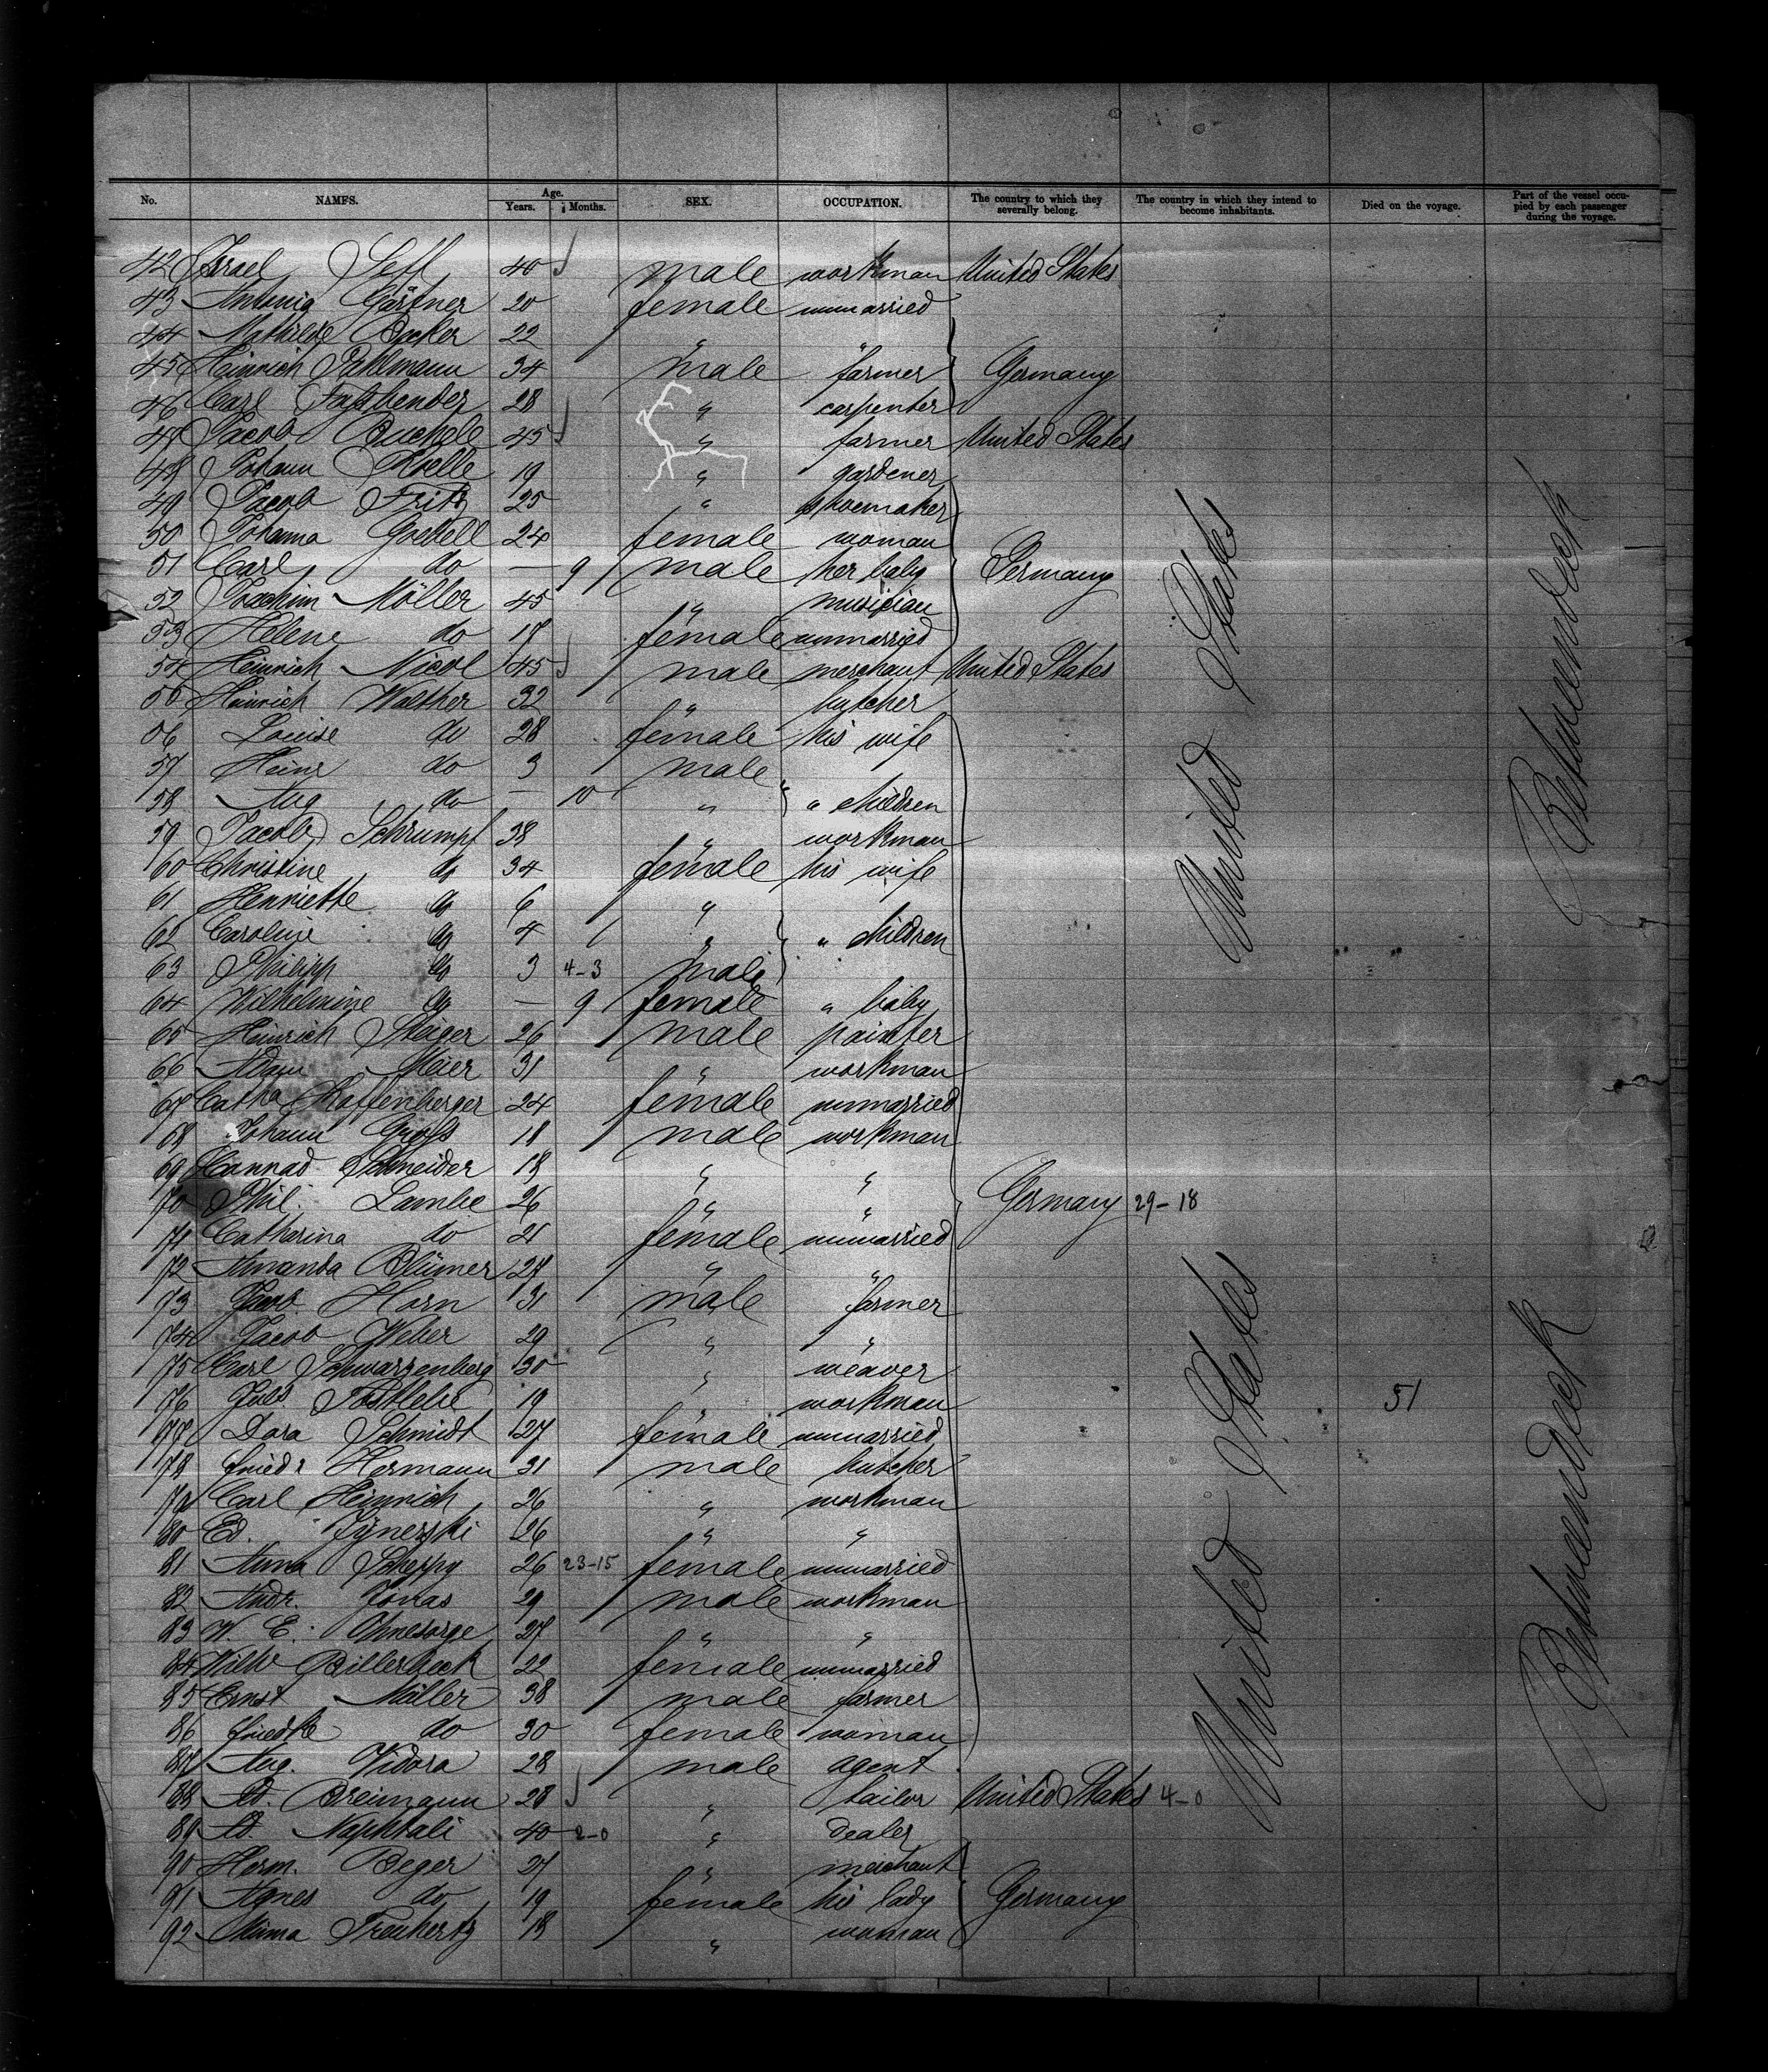 No. NAMES. Age. Years. Months. SEX. OCCUPATION. The country to which they severally belong. The country in which they intend to become inhabitants. Died on the voyage. Part of the vessel occupied by each passenger during the voyage.
42 Israel 40 male workman United States
43 Antonia Gärtner 20 female unmarried
44 Mathilde Backer 22 " "
45 Heinrich Pahlmann 34 male farmer Germany
46 Carl Faßbender 28 " carpenter
47 Jacob Buchele 45 " farmer United States
48 Johann 19 " gardener
49 Jacob Fritz 25 " shoemaker
50 Johanna 24 female woman
51 Carl do — 9 male her baby Germany
52 Joachim Möller 45 " musician
53 Helene do 17 female unmarried
54 Heinrich Nicol 45 male merchant United States
55 Heinrich Walther 32 " butcher
56 Louise do 28 female his wife
57 Heinr do 3 male
58 Aug do — 10 " " children
59 Jacob Schrumpf 38 " workman
60 Christine do 34 female his wife
61 Henriette do 6 "
62 Caroline do 4 " " children
63 Philipp do 3 4-3 male
64 Wilhelmine do — 9 female " baby
65 Heinrich Steiger 26 male painter
66 Adam Meier 31 " workman
67 Catha Haffenberger 24 female unmarried
68 Johann Groß 18 male workman
69 Connad Schneider 18 " "
70 Phil. Lambe 26 " " Germany 29-18
71 Catharina do 21 female unmarried
72 Amanda Blümer 27 " "
73 Jacob Horn 31 male farmer
74 Jacob Weber 29 " "
75 Carl Schwarzenberg 30 " weaver
76 Jul's 19 " workman 51
77 Dora Schmidt 27 female unmarried
78 Friedr Hermann 31 male butcher
79 Carl Heinrich 26 " workman
80 Ed. 26 " "
81 Anna Scheppy 26 23-15 female unmarried
82 Andr. Jonas 29 male workman
83 W. E. Ohnesorge 27 " "
84 Wilhe Billerbeck 22 female unmarried
85 Ernst Müller 38 male farmer
86 Friedke do 30 female woman
87 Aug. Vidora 28 male agent
88 Ad. Breimann 28 " tailor United States 4-0
89 Ad. Naphtali 40 2-0 " dealer
90 Herm. Beger 27 " merchant
91 Agnes do 19 female his lady Germany
92 Anna Treuhertz 18 " woman
United States
United States
Betweendeck
Betweendeck